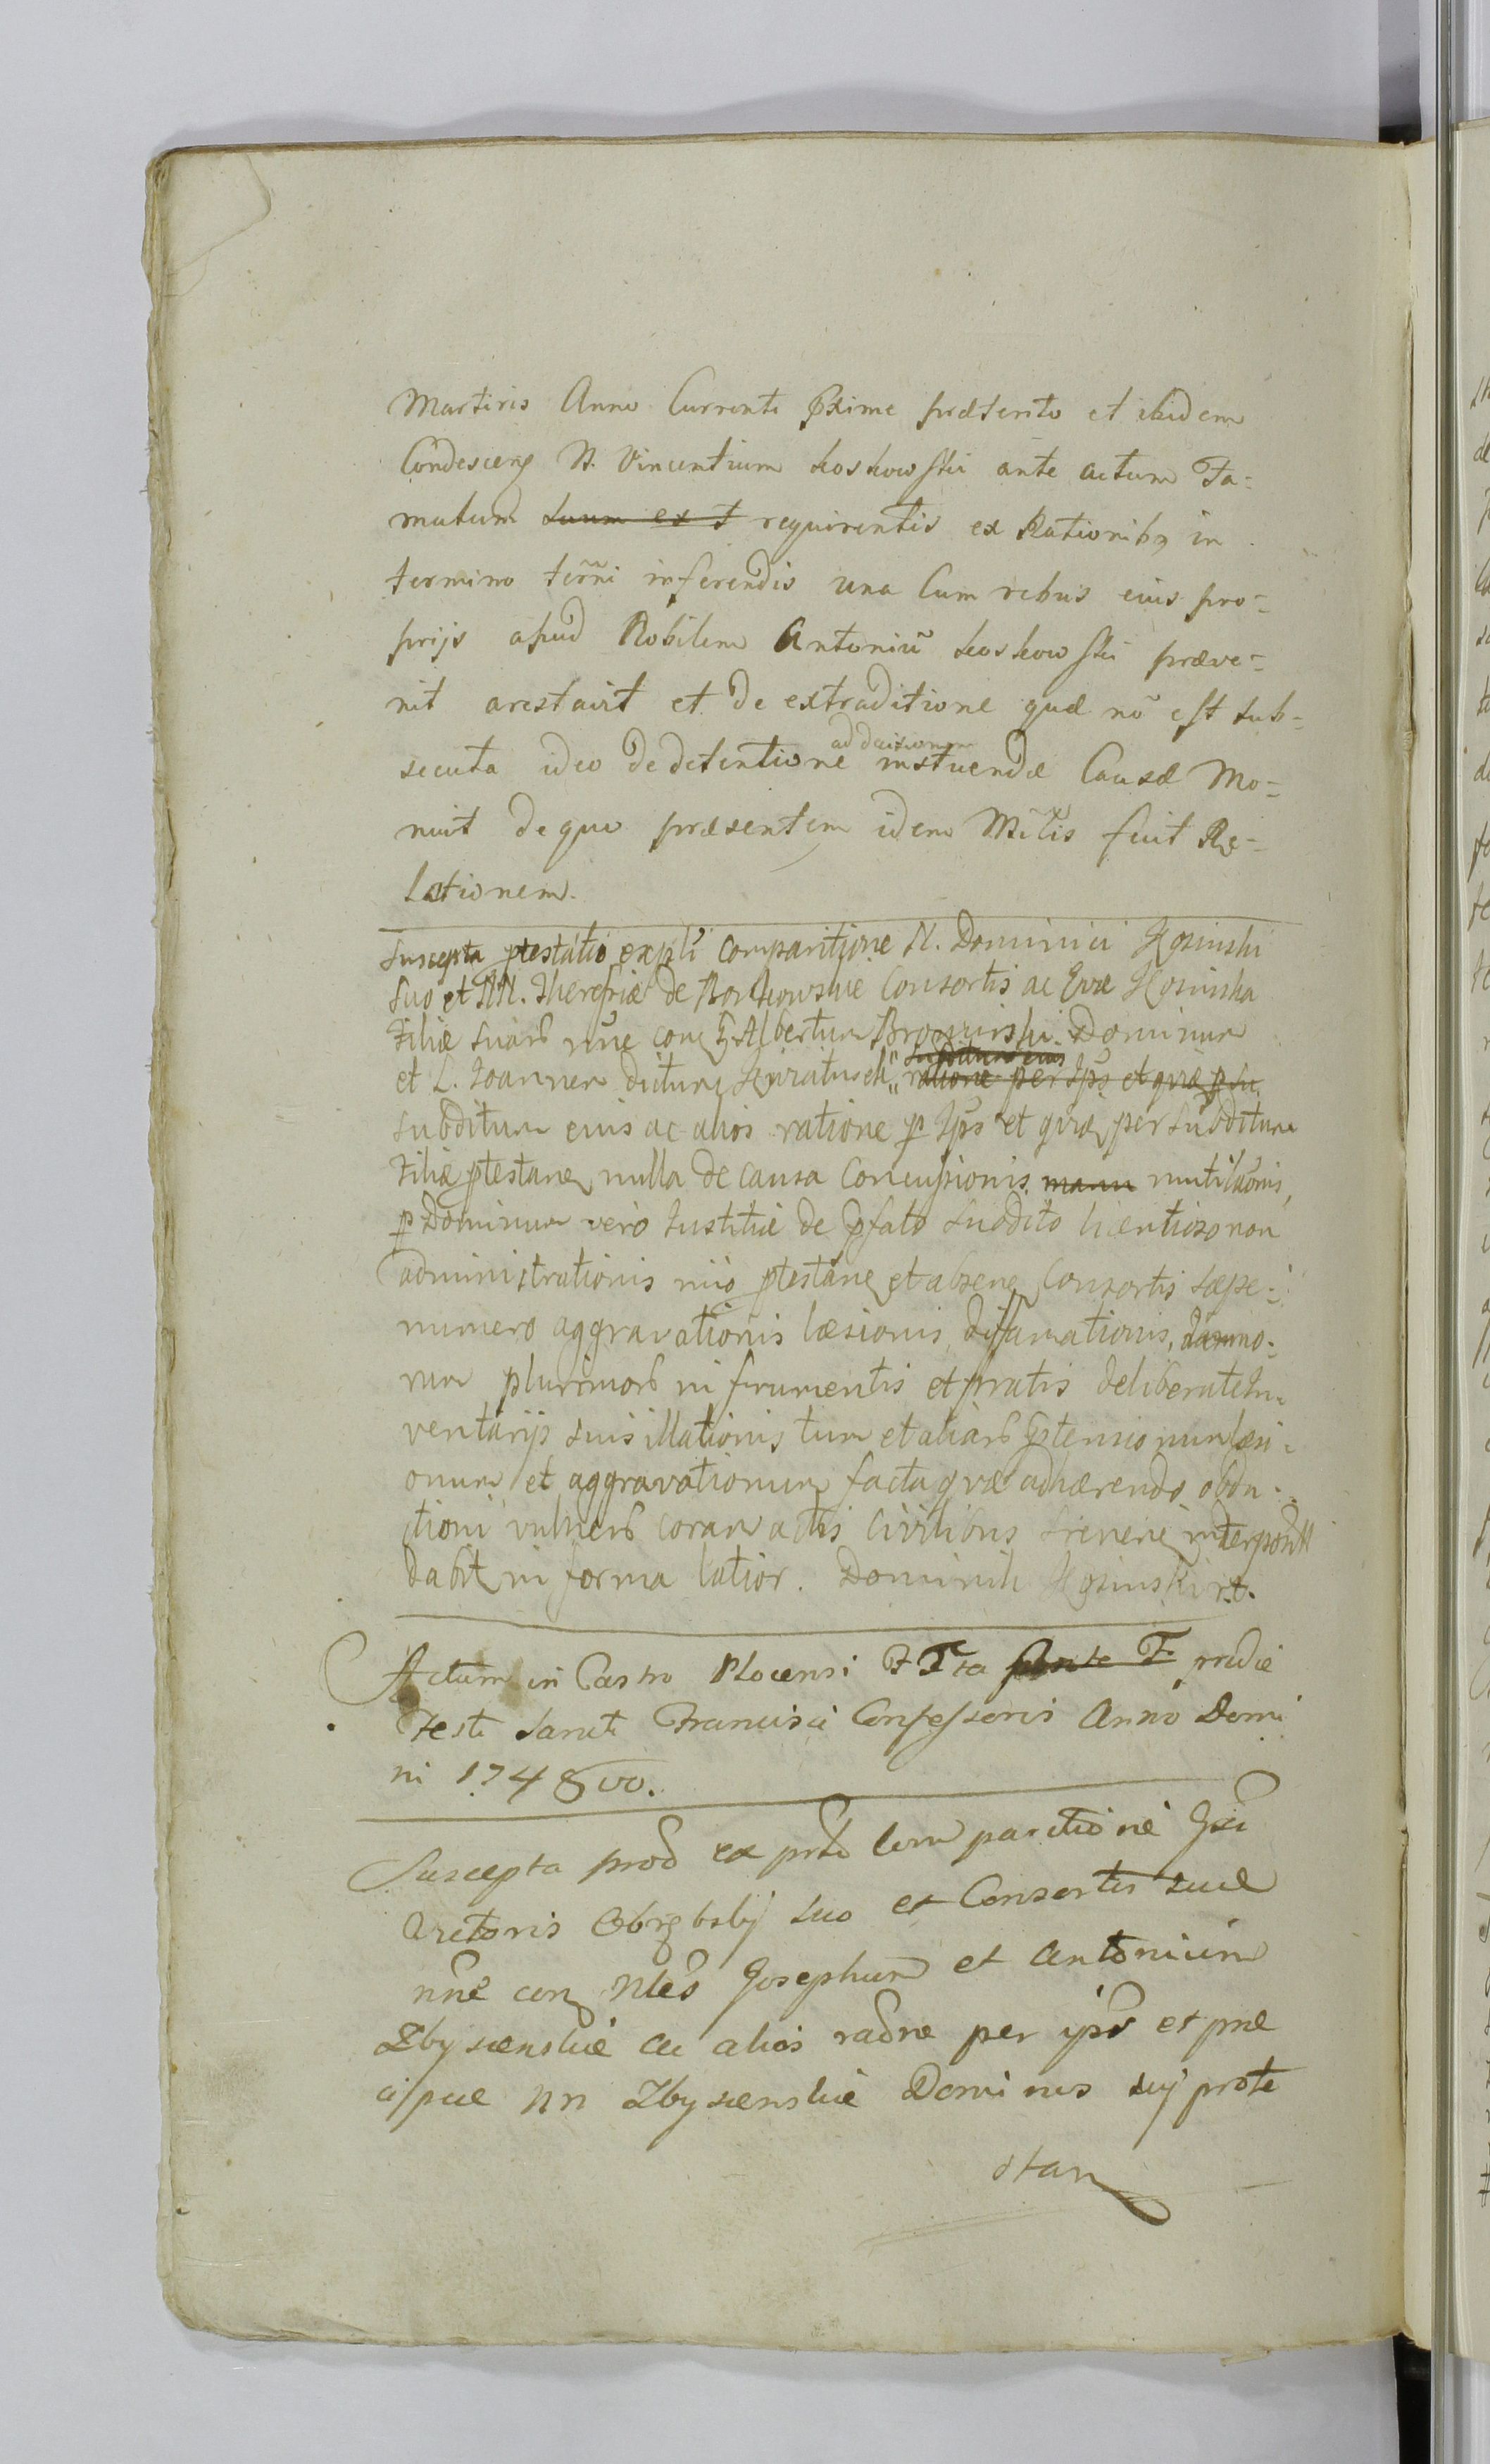 Martiris Anno Currenti proxime præterito et ibidem
Condescens N. Vincentium Koskowski ante actum Fa-
mulum suum ex t requirentis ex Rationibq in
termino terñi inferendis una Cum rebus eius pro-
prijs apud Nobilem Antoniũ Koskowski præve-
nit arestavit et de extraditione quæ nõ est sub-
secuta ideo de detentione ad decisionem instuendæ Causæ Mo-
nuit de quo præsentem idem Mĩlis fecit Re-
lationem.
Suscepta ptestatio expli comparitione N. Dominici Kosinski
suo et NN. Theresiæ de Borkowskie Consortis ac Evæ Kosinska
Filiæ suarũ nñe con G. Albertum Dominum
et L. Joannem dictum subditum eius ratione per Ips et quæ p su
subditum eius ac alios ratione p Ips et quæ per subditum
Filiæ ptestane nulla de causa Concussionis manu mutilaõnis,
p Dominum vero Justitiæ de pfato subdito licentioso non
administrationis nño ptestane et absene Consortis sæpe-
numero aggravationis læsionis, difamationis, damno-
rum plurimorũ in frumentis et pratis deliberate In-
ventarijs suis illationis tum et aliarũ ptensionum læsi-
onum et aggravationum facta quæ adhærendo obdu-
ctioni vulnerũ coram actis Civilibus interponti
dabit in forma latior. Dominik Kosinski mp.
Actum in Castro Plocensi F Tta ante F. pridie
Festi Sancti Francisci Confessoris Anno Domi
ni 1748vo.
Suscepta prod ex prti Com paritione Gsi
Obrębski suo et Consortis suæ
nñe con Nles Josephum et Antonium
Zbysienskie ac alios raõne per ips et præ
cipue NN Zbysienskie Dominos suj prote
stan